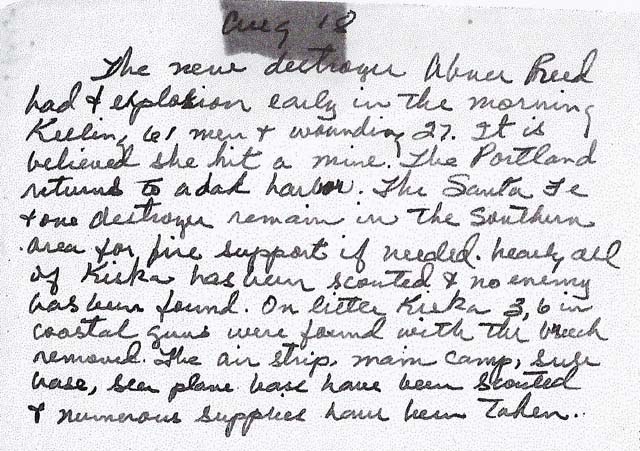 Aug 18
The new destroyer Abner Reed
had & explosion early in the morning
Keeling 61 men & wounding 27. It is
believed she hit a mine. The Portland
returns to adak harbor. The Santa Fe
& one destroyer remain in the Southern
area for fire support if needed. nearly all
of Kiska has been scouted & no enemy
has been found. On little Kiska 3, 6 in
coastal guns were found with the breech
removed. The air strip, main camp, sub
base, sea plane base have been scouted
& numerous supplies have been taken.